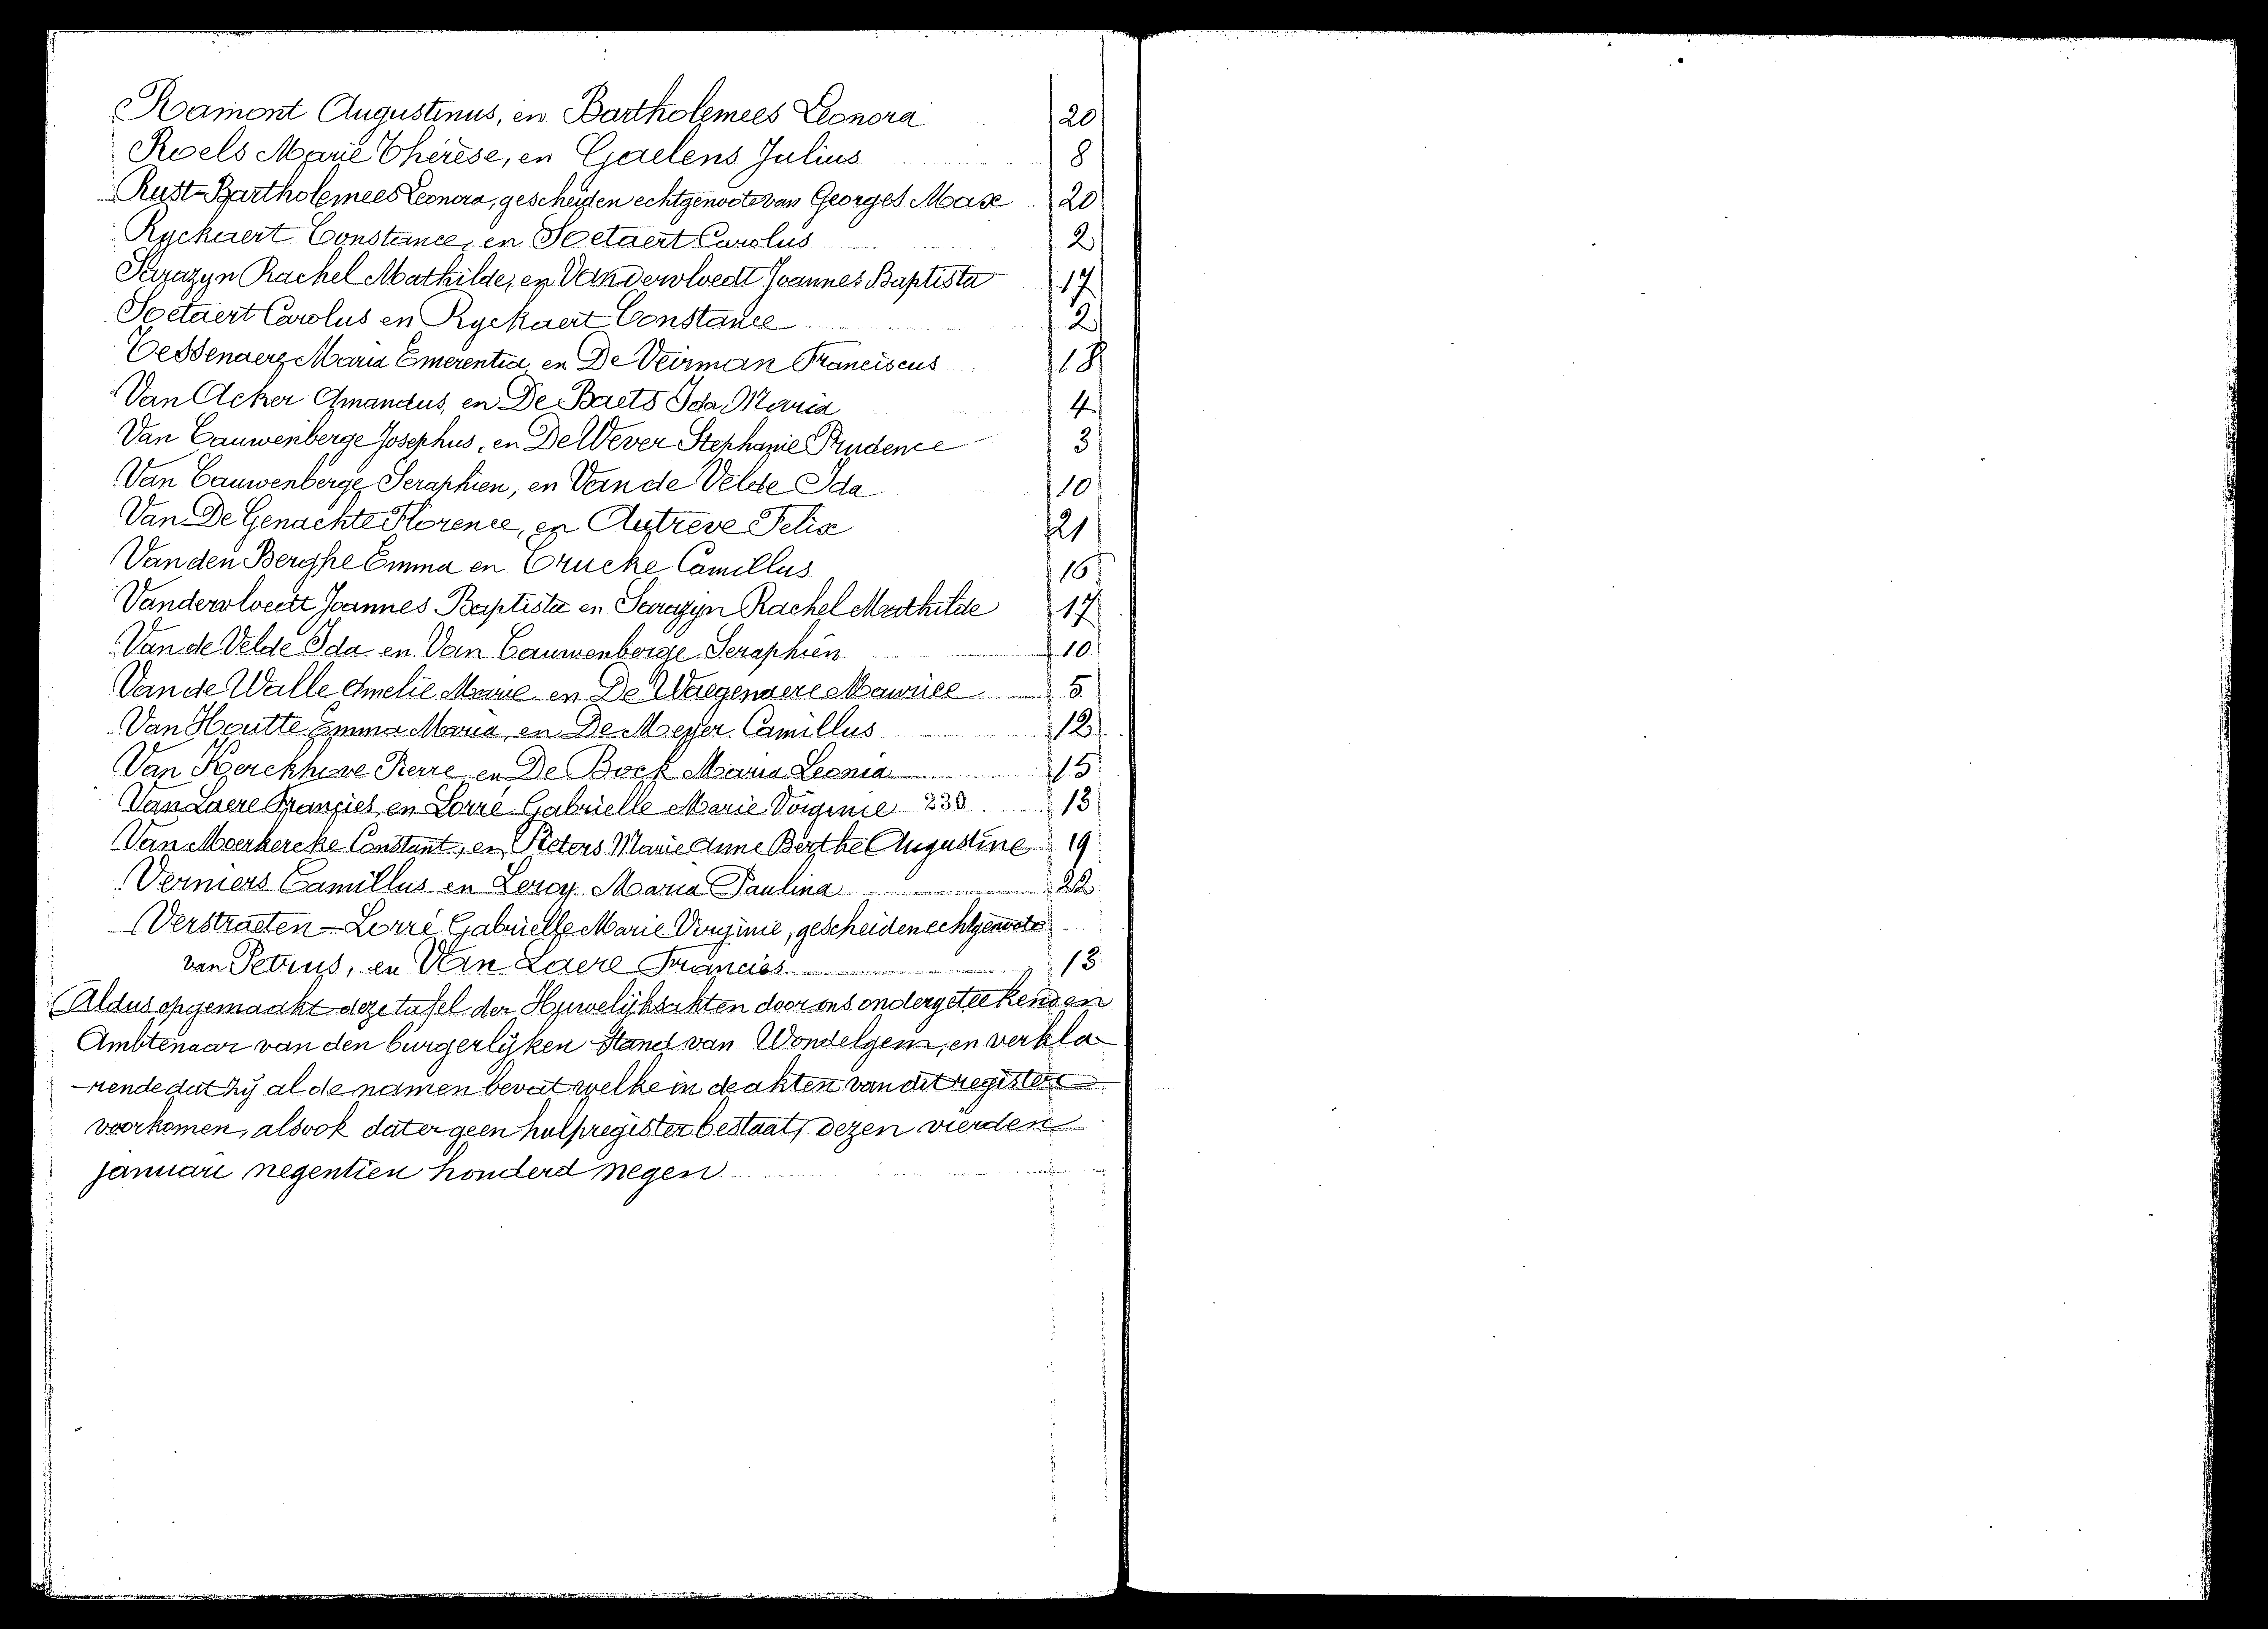 Ramont Augustinus, en Bartholemees Leonora 20
Roels Marie Thérèse, en Gaelens Julius 8
Rust-Bartholemees Leonora, gescheiden echtgenoote van Georges Max 20
Ryckaert Constance, en Soetaert Carolus 2
Sarazyn Rachel Mathilde, en Vandervloedt Joannes Baptista 17
Soetaert Carolus en Ryckaert Constance 2
Tessenaere Maria Emerentia, en De Veirman Franciscus 18
Van Acker Amandus, en De Baets Ida Maria 4
Van Cauwenberge Josephus, en De Wever Stephanie Prudence 3
Van Cauwenberge Seraphien, en Van de Velde Ida 10
Van De Genachte Florence, en Autreve Felix 21
Vanden Berghe Emma en Crucke Camillus 16
Vandervloedt Joannes Baptista en Sarazyn Rachel Mathilde 17
Van de Velde Ida en Van Cauwenberge Seraphien 10
Van de Walle Amelie Marie en De Waegenaere Maurice 5
Van Houtte Emma Maria, en De Meyer Camillus 12
Van Kerckhove Pierre en De Bock Maria Leonia 15
Van Laere Francies, en Lorré Gabrielle Marie Virginie 230 13
Van Moerkercke Constant, en Pieters Marie Anne Berthe Augustine 19
Verniers Camillus en Leroy Maria Paulina 22
Verstraeten-Lorré Gabrielle Marie Virginie, gescheiden echtgenoote
van Petrus, en Van Laere Francies 13
Aldus opgemaakt deze tafel der Huwelijksakten door ons ondergeteekenden
Ambtenaar van den burgerlijken stand van Wondelgem, en verkla-
-rende dat zij al de namen bevat welke in de akten van dit register
voorkomen, alsook dat er geen hulpregister bestaat, dezen vierden
januari negentien honderd negen